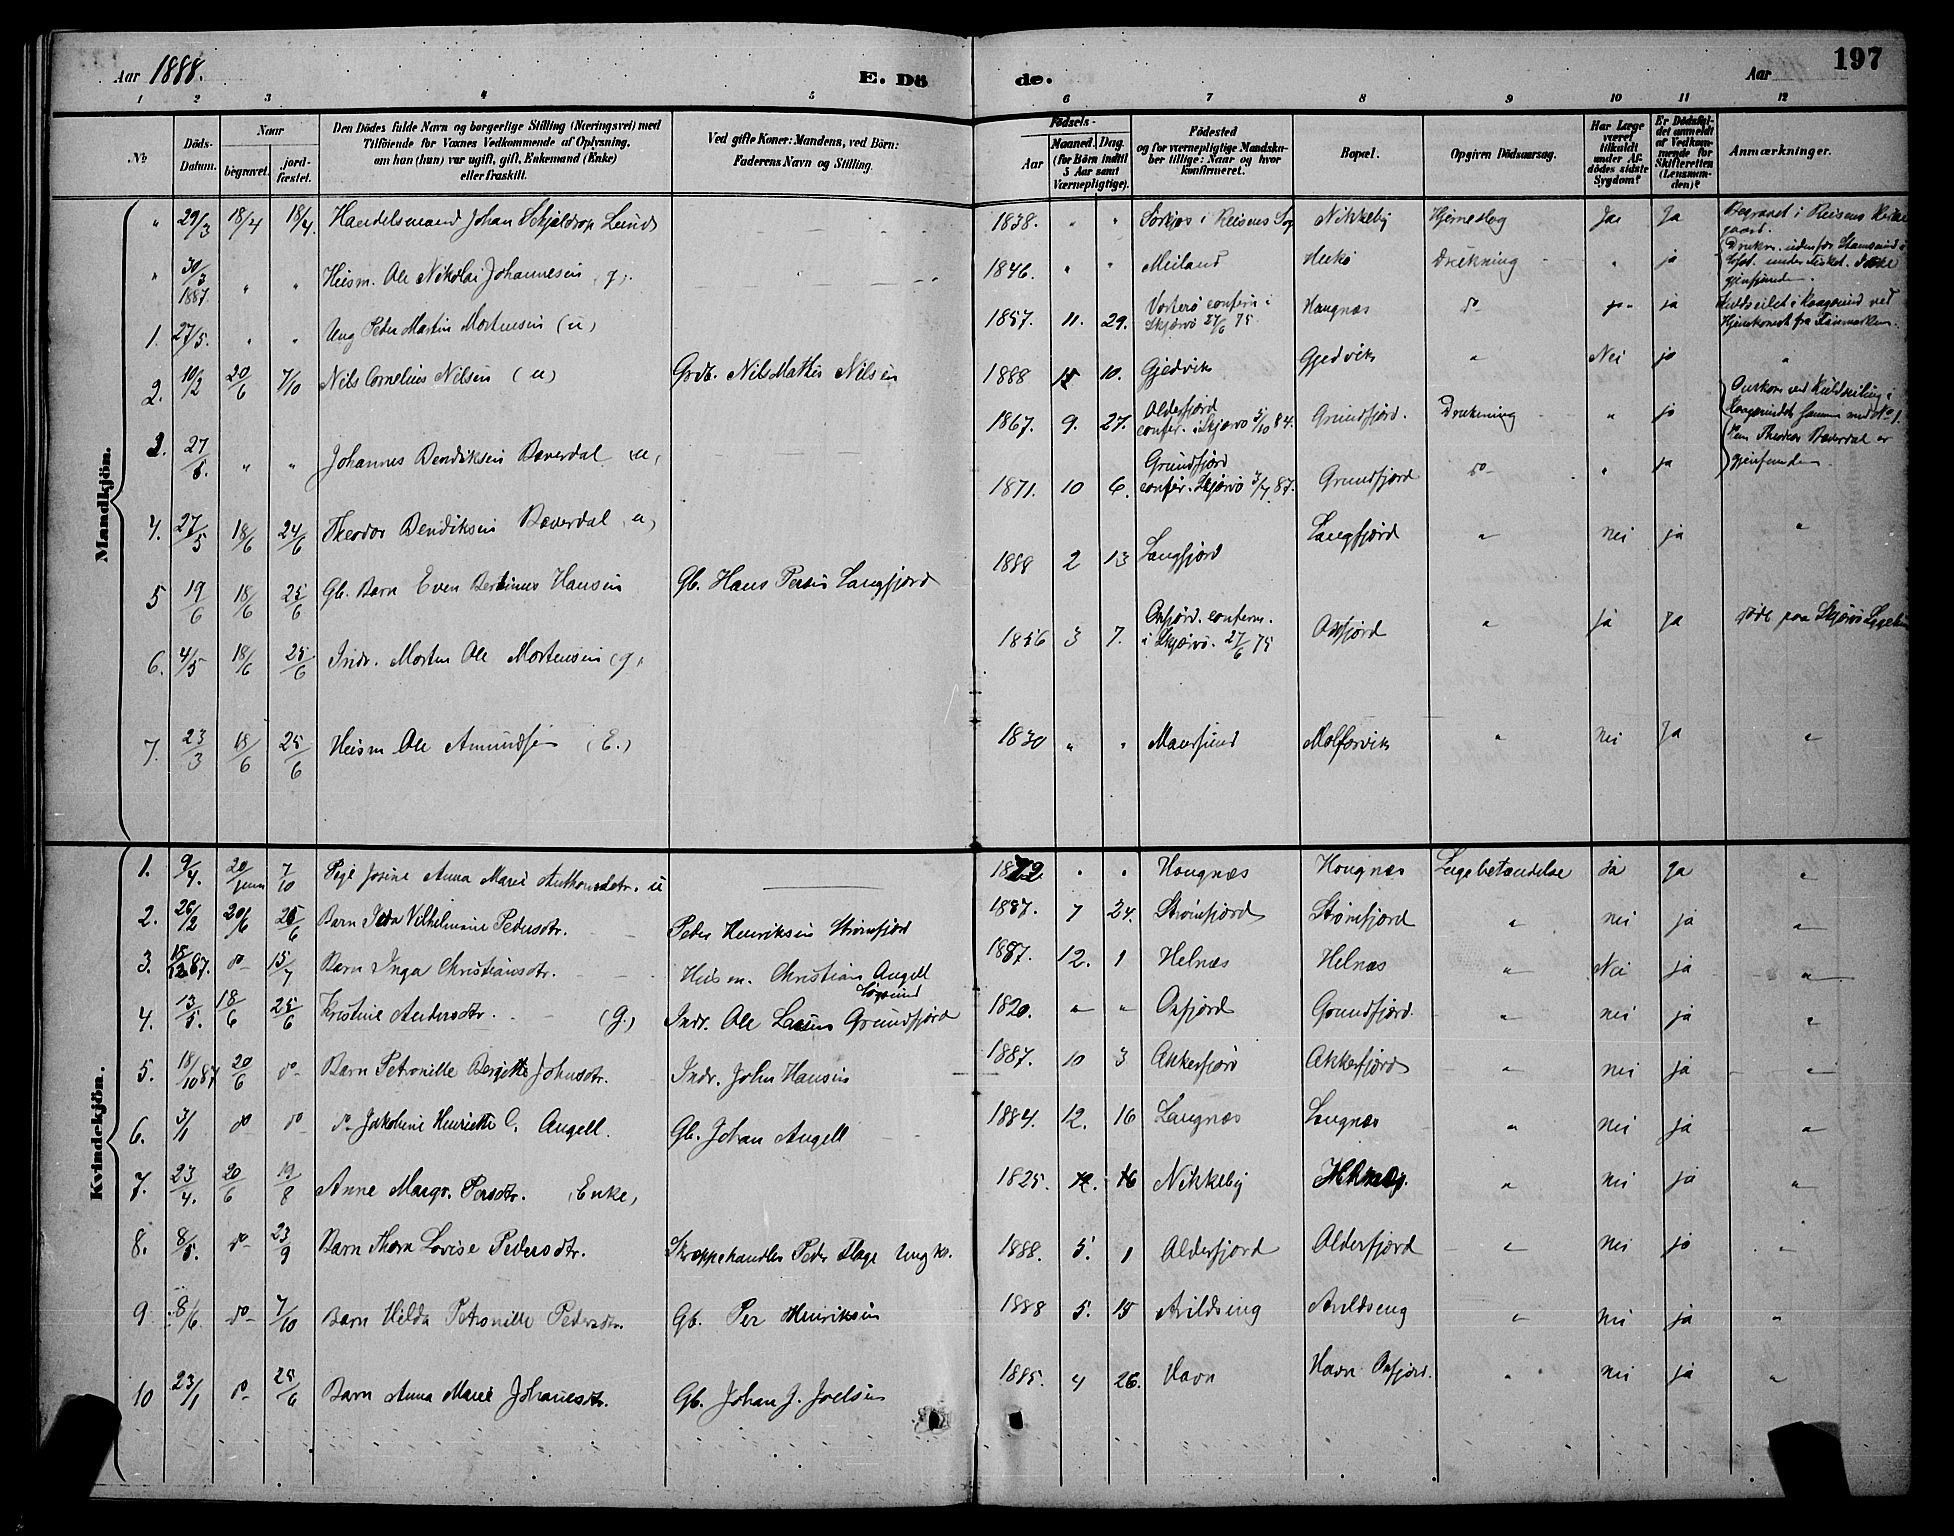 Aar 1888.
E. Dö
de.
Aar
197
1 2 3 4 5 6 7 8 9 10 11 12
No
Döds-
Datum.
Naar
begravet.
jord-
fæstet.
Den Dödes fulde Navn og borgerlige Stilling (Næringsvei) med
Tilföiende for Voxnes Vedkommende af Oplysning.
om han (hun) var ugift, gift, Enkemand (Enke)
eller fraskilt.
Ved gifte Koner: Mandens, ved Börn:
Faderens Navn og Stilling.
Födsels-
Aar
Maaned. Dag.
(for Börn indtil
5 Aar samt
Værnepligtige).
Födested
og for værnepligtige Mandska-
ber tillige: Naar og hvor
konfirmeret.
Bopæl.
Opgiven Dödsaarsag.
Har Læge
været
tilkaldt
under Af-
dödes sidste
Sygdom?
Er Dödsfal-
det anmeldt
af Vedkom-
mende for
Skifteretten
(Lensman-
den)?
Anmærkninger.
Mandkjön.
" 29/3 18/4 18/4. Handelsmand Johan Skjeldrop Lund 1838. " " i Reisens Sogn Nikkeby Hjerneslag Ja Ja Begravet i Reisens Kirke
gaard.
" 30/3 1887 " " Huusm. Ole Nikolai Johannesen g. 1846. " " Meiland Drukning " ja Drukn. udenfor Stamsund i
Lofot. under Fisket. Ikke
gjenfunden
1. 27/5. " " Ung Peder Martin Mortensen (u) 1857. 11. 29. Vorterø conferm i
Skjervø 27/6 75. Haugnæs do ja Kuldseilet i Kaagsund ved
Hjemkomst fra Finmarken.
2. 10/2 20/6 7/10 Nils Cornelius Nilsen (u) Grdb. Nils Mathis Nilsen 1888 10. Gjedvik Gjedvik " Nei ja "
3. 27/5. " " Johannes Bendiksen Bæverdal u, 1867. 9. 27. Alderfjord
confer. i Skjervø 5/10 84. Grundfjord. Drukning " ja Omkom ved Kuldseiling i
Kaagsundet samme med No 1.
Kun Theodor Bæverdal er
gjenfunden.
4. 27/5 18/6 24/6 Theodor Bendiksen Bæverdal u, 1871. 10 6. Grundfjord
confer. Skjervø 3/7 87. Grundfjord do " ja
5 19/6 18/6 25/6 Gb. Barn Even Berlines Hansen Gb. Hans Persen Langfjord 1888 2 13 Langfjord Langfjord " nei ja "
6. 4/5 18/6 25/6 Indr. Morten Ole Mortensen (g, 1856 3 7. Oxfjord. conferm.
i Skjærvø. 27/6 75 Oxfjord " ja ja døde paa Skjærvø
7. 23/3 18/6 25/6 Huusm Ole Amundsen (E.) 1830 " " Maursund Molforvik " nei ja "
Kvindekjön.
1. 9/4. 20/juni 7/10 Pige Josine Anna Marie Anthonsdtr. u 1872 " " Hougnæs Hougnæs Lugebetændelse Ja Ja "
2. 26/2 20/6 25/6 Barn Ida Vilhelmine Pedersdtr. Peder Henriksen Strømfjord 1887. 7 24. Strømfjord Strømfjord " nei ja "
3. 15/12 87. do 15/7 Barn Inga Christiansdtr. Huusm. Christian Angell 1887. 12. 1 Helnæs Helnæs " Nei ja "
4. 13/5. 18/6 25/6 Kristine Andersdtr. (g.) Indr. Ole Larsen Grundfjord 1820. " " Oxfjord Grundfjord. " nei ja "
5. 18/10 87 20/6 do Barn Petronille Bergitte Johnsdtr. Indr. John Hansen 1887. 10 3 Akkerfjord Akkerfjord " nei ja "
6. 3/1 do do do Jakobine Henriette C. Angell. Gb. Johan Angell 1884. 12. 16 Langnæs Langnæs " nei ja "
7. 23/4. 20/6 19/8 Anne Margr. Persdtr. (Enke) 1825. 12. 16 Nikkeby " nei ja "
8. 8/5. do 23/9 Barn Thora Lovise Pedersdtr. Skræppehandler Peder Flage Ungk. 1888. 5. 1 Alderfjord Alderfjord " nei ja "
9 8/6. do 7/10 Barn Hilda Petronille Pedersdtr. Gb. Per Henriksen 1888 5. 15 Arildseng Arildseng " nei ja "
10 23/1 do 25/6 Barn Anna Marie Johanesdtr. Gb. Johan J. Joelsen 1885 4 26. Havn Havn Oxfjord. " nei ja "